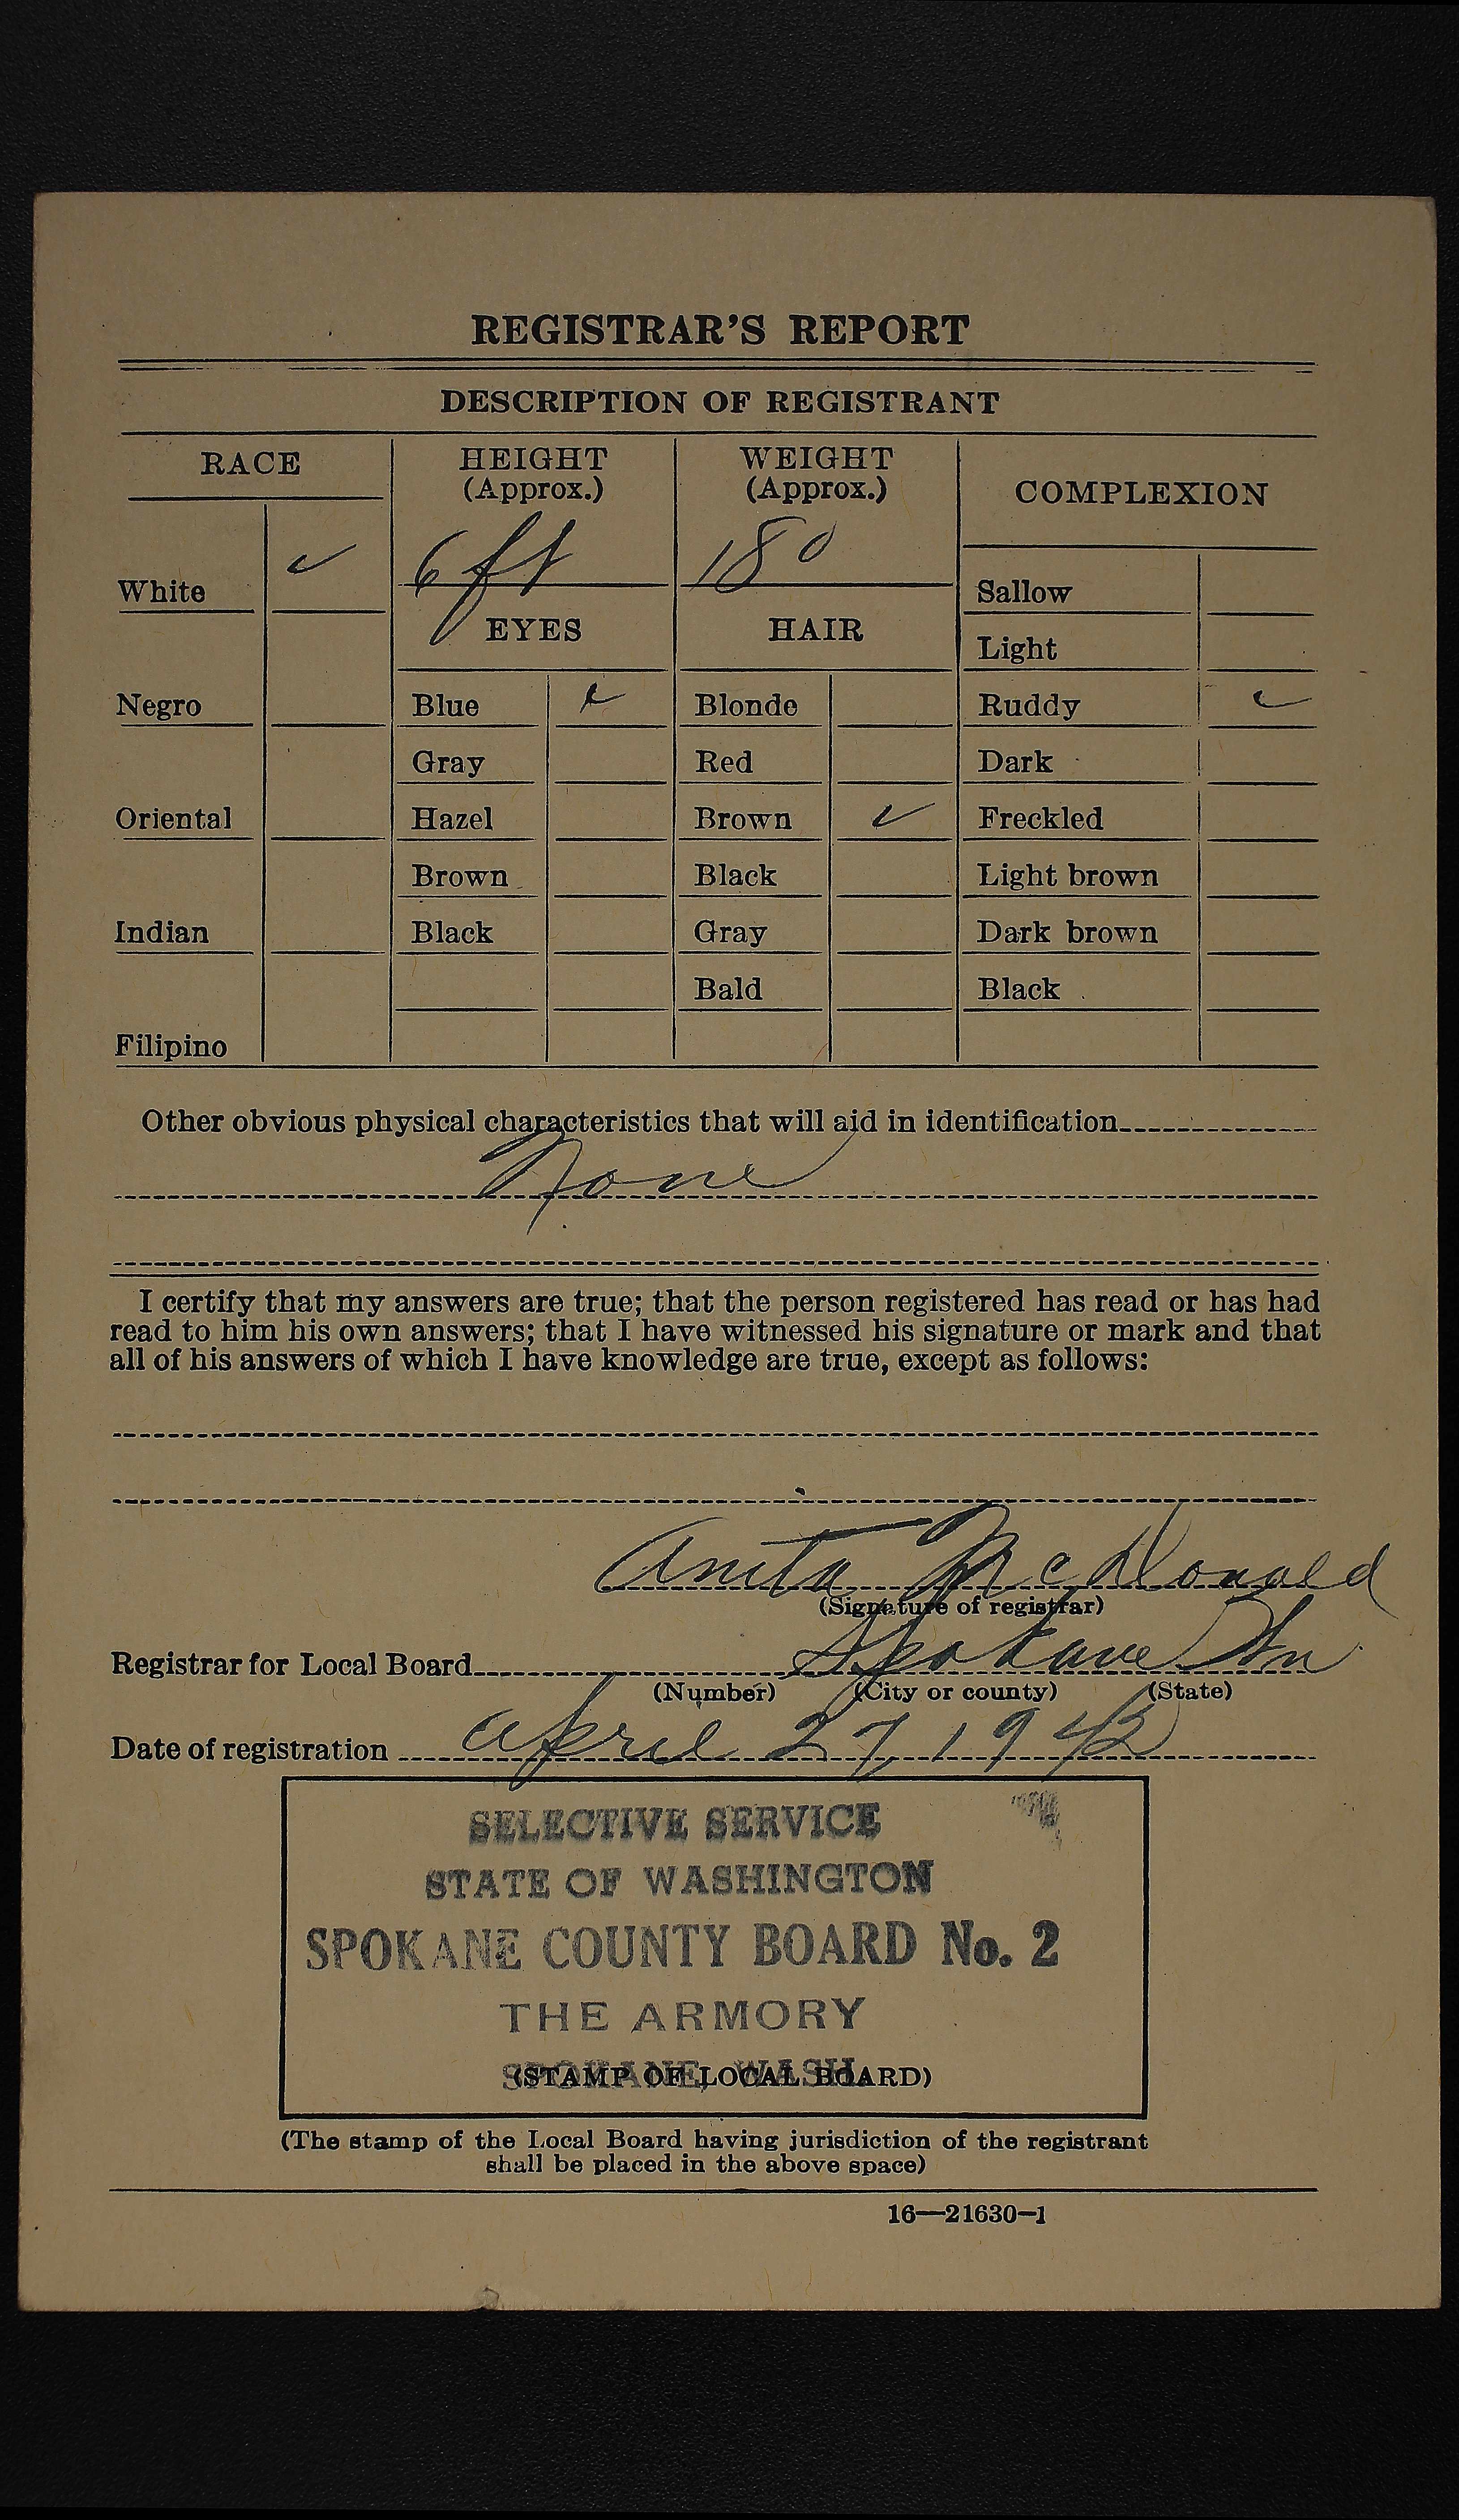 REGISTRAR'S REPORT
DESCRIPTION OF REGISTRANT
RACE
HEIGHT
(Approx.)
WEIGHT
(Approx.)
COMPLEXION
White ✓
6 ft
180
Sallow
EYES
HAIR
Light
Negro
Blue ✓
Blonde
Ruddy ✓
Gray
Red
Dark
Oriental
Hazel
Brown ✓
Freckled
Brown
Black
Light brown
Indian
Black
Gray
Dark brown
Bald
Black
Filipino
Other obvious physical characteristics that will aid in identification
None
I certify that my answers are true; that the person registered has read or has had
read to him his own answers; that I have witnessed his signature or mark and that
all of his answers of which I have knowledge are true, except as follows:
Anita McDonald
(Signature of registrar)
Registrar for Local Board Spokane Wn
(Number) (City or county) (State)
Date of registration April 27, 1942
SELECTIVE SERVICE
STATE OF WASHINGTON
SPOKANE COUNTY BOARD No. 2
THE ARMORY
SPOKANE, WASH.
(STAMP OF LOCAL BOARD)
(The stamp of the Local Board having jurisdiction of the registrant
shall be placed in the above space)
16—21630-1